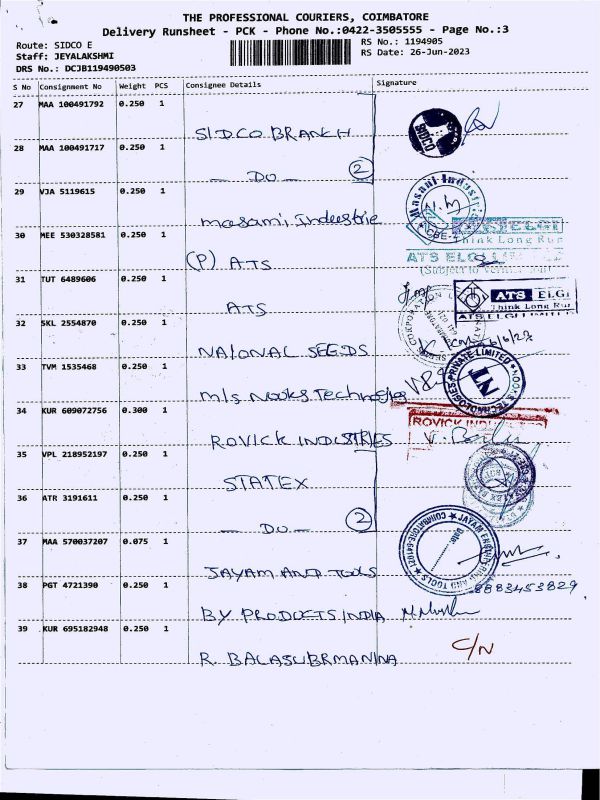 THE PROFESSIONAL COURIERS, COIMBATORE
Delivery Runsheet - PCK - Phone No.:0422-3505555 - Page No.:3
Route: SIDCO E
RS No.: 1194905
Staff: JEYALAKSHMI
RS Date: 26-Jun-2023
DRS No.: DCJB119490503
S No Consignment No Weight PCS Consignee Details Signature
27 MAA 100491792 0.250 1
SIDCO BRANCH
SIDCO
28 MAA 100491717 0.250 1
- DO - 2
29 VJA 5119615 0.250 1
Masami, Indeestrie
Masani Industries
CBE
30 MEE 530328581 0.250 1
(P) ATS
ELGI
Think Long Run
ATS ELGI
31 TUT 6489606 0.250 1
ATS
ATS ELGI
Think Long Run
ATS ELGI LIMITED
32 SKL 2554870 0.250 1
NAIONAL SEEDS
33 TVM 1535468 0.250 1
M/s Nooks Technologies
NOOKS TECHNOLOGIES PRIVATE LIMITED
34 KUR 609072756 0.300 1
ROVICK INDUSTRIES
ROVICK
35 VPL 218952197 0.250 1
STATEX
36 ATR 3191611 0.250 1
- DO - 2
37 MAA 570037207 0.075 1
JAYAM AND TOOLS
JAYAM ENGINEERING AND TOOLS
38 PGT 4721390 0.250 1
8883453829
BY PRODUCTS INDIA
39 KUR 695182948 0.250 1
R. BALASUBRMANINA
C/N